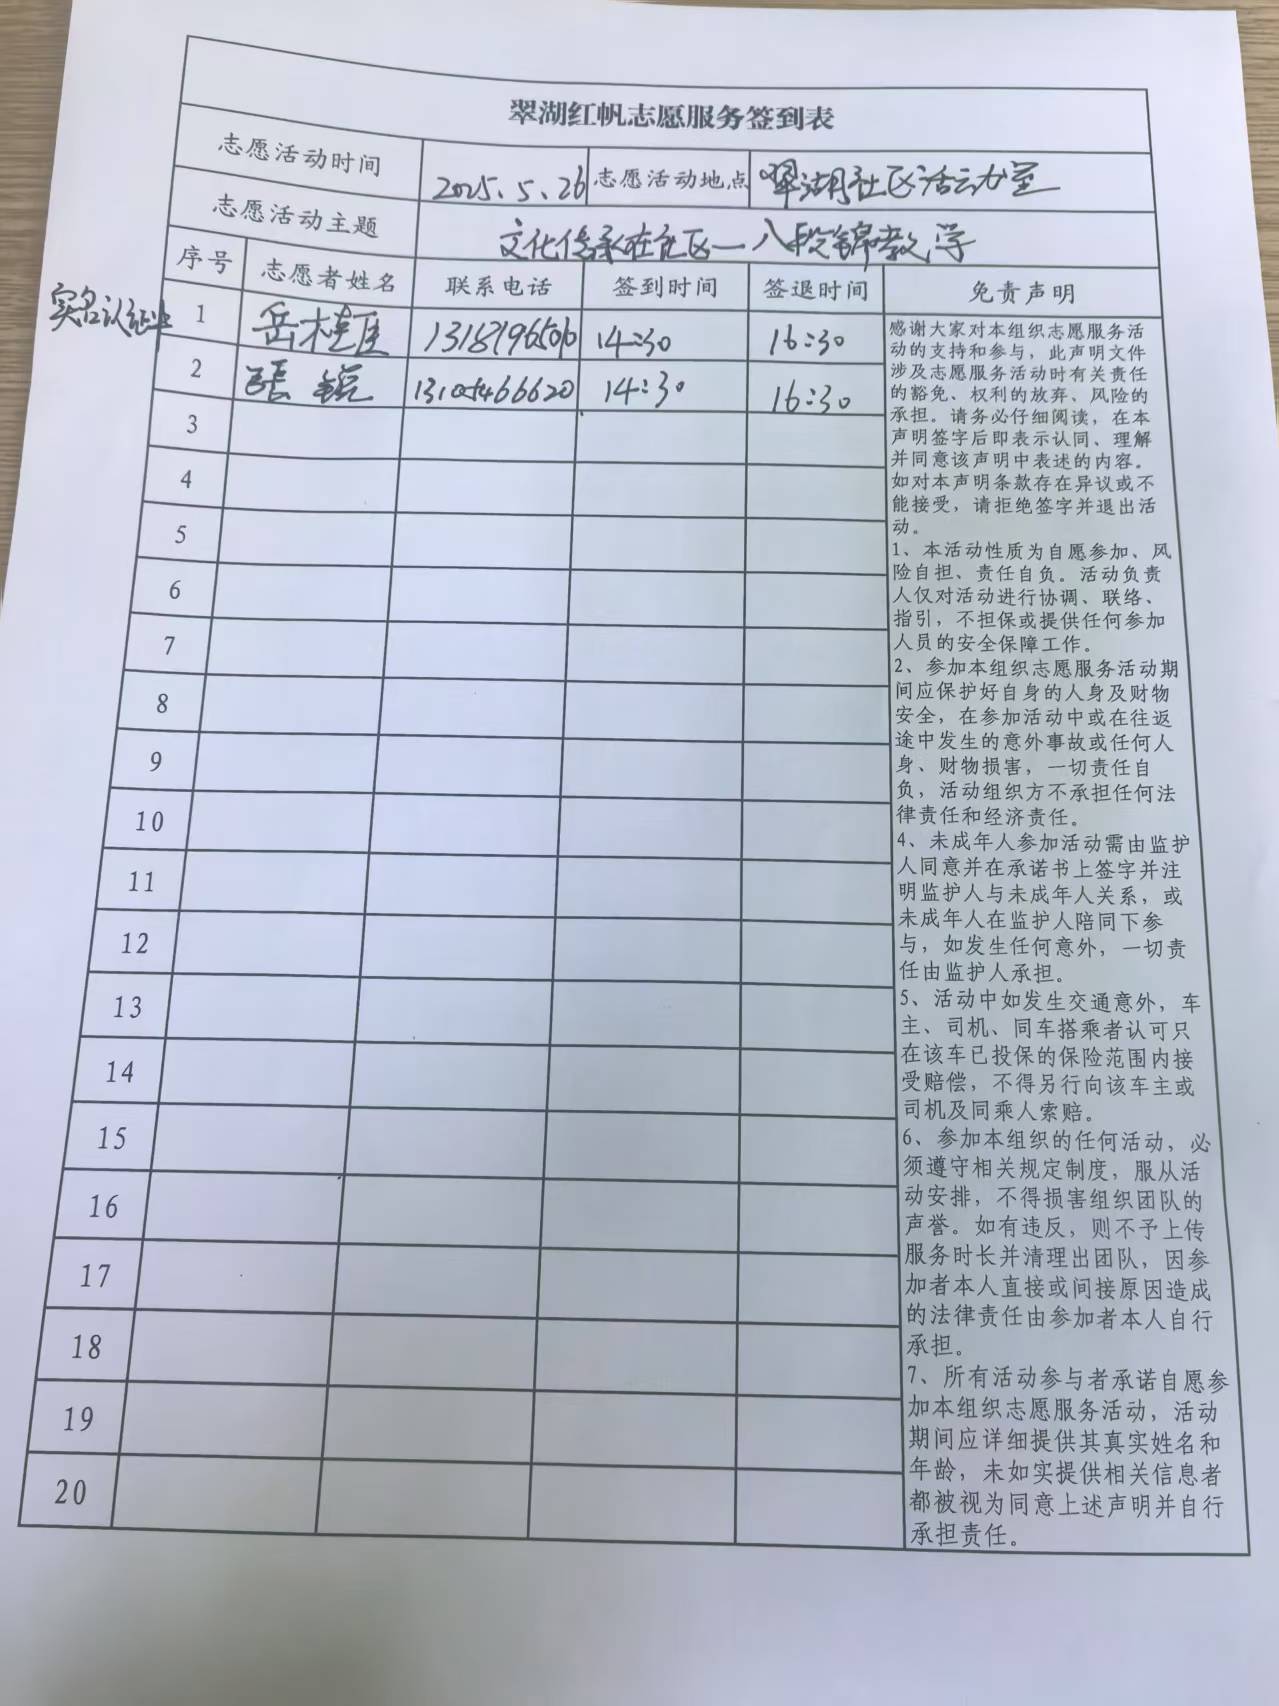 翠湖红帆志愿服务签到表
志愿活动时间 2025.5.26 志愿活动地点 翠湖社区活动室
志愿活动主题 文化传承在社区—八段锦教学
序号 志愿者姓名 联系电话 签到时间 签退时间 免责声明
实名认证
1 岳桂 14:30 16:30
2 張 锐 14:30 16:30
3
4
5
6
7
8
9
10
11
12
13
14
15
16
17
18
19
20
感谢大家对本组织志愿服务活
动的支持和参与，此声明文件
涉及志愿服务活动时有关责任
的豁免、权利的放弃、风险的
承担。请务必仔细阅读，在本
声明签字后即表示认同、理解
并同意该声明中表述的内容。
如对本声明条款存在异议或不
能接受，请拒绝签字并退出活
动。
1、本活动性质为自愿参加、风
险自担、责任自负。活动负责
人仅对活动进行协调、联络、
指引，不担保或提供任何参加
人员的安全保障工作。
2、参加本组织志愿服务活动期
间应保护好自身的人身及财物
安全，在参加活动中或在往返
途中发生的意外事故或任何人
身、财物损害，一切责任自
负，活动组织方不承担任何法
律责任和经济责任。
4、未成年人参加活动需由监护
人同意并在承诺书上签字并注
明监护人与未成年人关系，或
未成年人在监护人陪同下参
与，如发生任何意外，一切责
任由监护人承担。
5、活动中如发生交通意外，车
主、司机、同车搭乘者认可只
在该车已投保的保险范围内接
受赔偿，不得另行向该车主或
司机及同乘人索赔。
6、参加本组织的任何活动，必
须遵守相关规定制度，服从活
动安排，不得损害组织团队的
声誉。如有违反，则不予上传
服务时长并清理出团队，因参
加者本人直接或间接原因造成
的法律责任由参加者本人自行
承担。
7、所有活动参与者承诺自愿参
加本组织志愿服务活动，活动
期间应详细提供其真实姓名和
年龄，未如实提供相关信息者
都被视为同意上述声明并自行
承担责任。